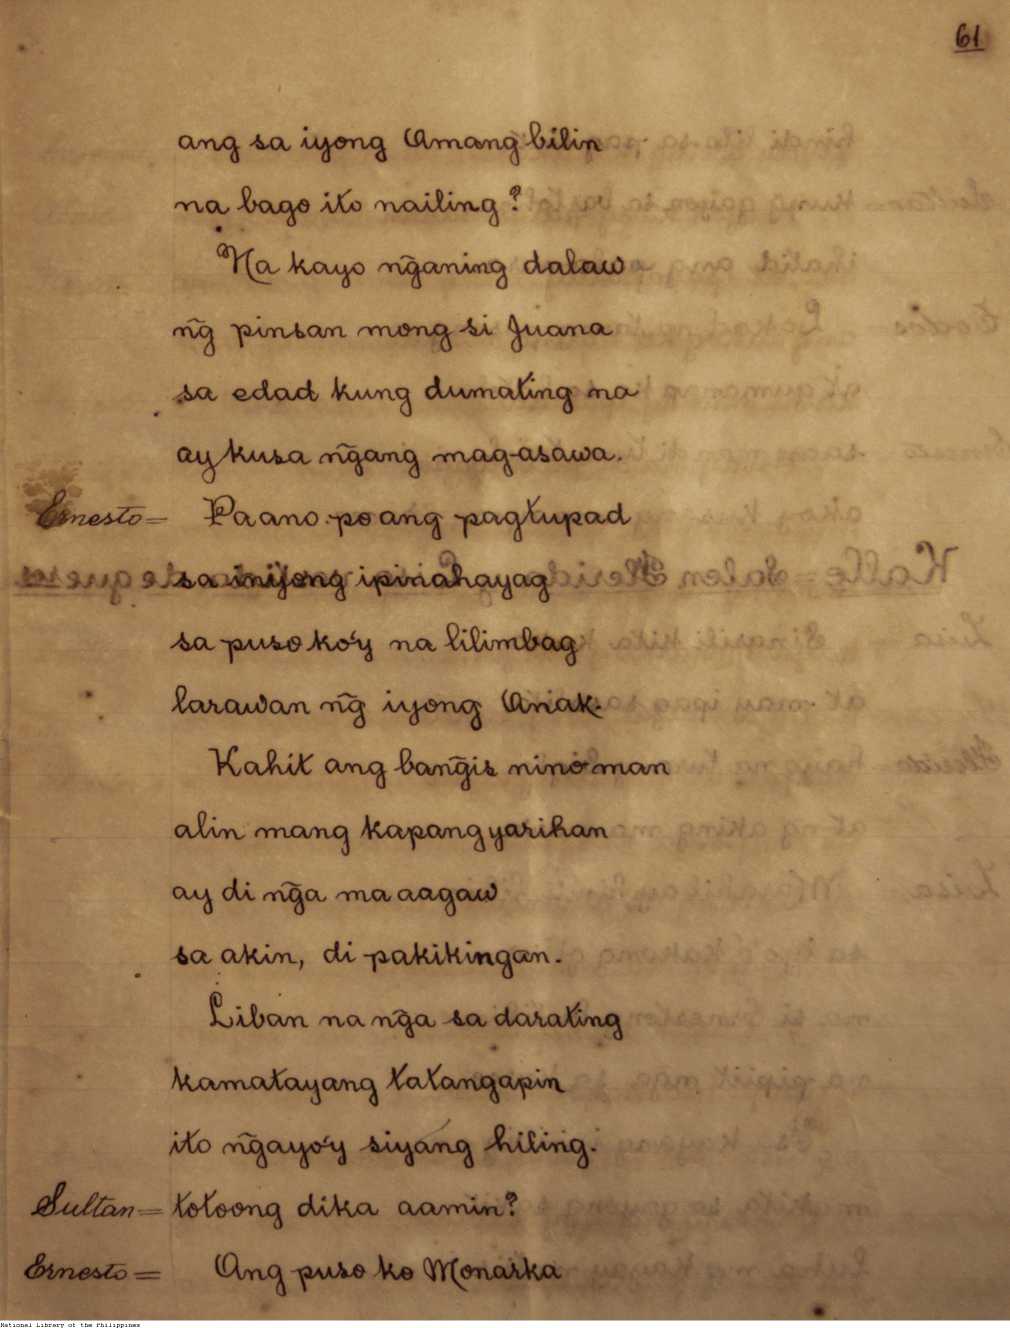 61
ang sa iyong Amang bilin
na bago ito nailing?
Na kayo ng̃aning dalaw
ng̃ pinsan mong si Juana
sa edad kung dumating na
ay kusa ng̃ang mag-asawa.
Ernesto= Paano po ang pagtupad
sa inyong ipinahayag
sa puso ko'y na lilimbag
larawan ng̃ iyong Anak.
Kahit ang bang̃is nino man
alin mang kapangyarihan
ay di ng̃a ma aagaw
sa akin, di pakikingan.
Liban na ng̃a sa darating
kamatayang tatangapin
ito ng̃ayo'y siyang hiling.
Sultan= totoong dika aamin?
Ernesto= Ang puso ko Monarka
National Library of the Philippines